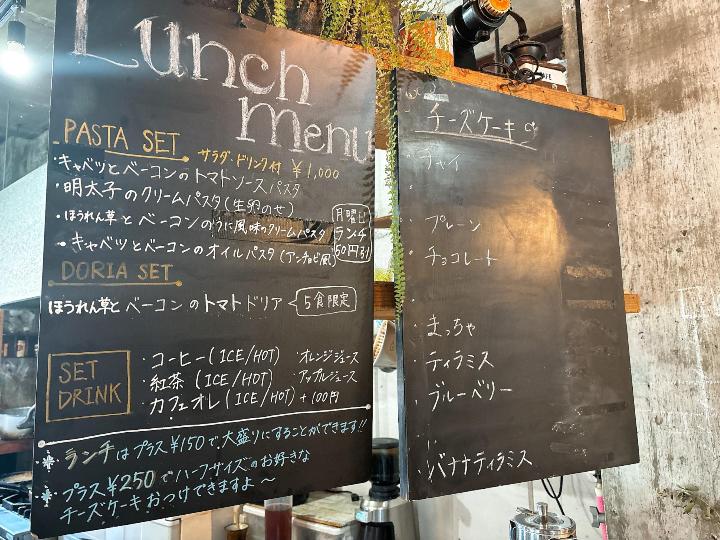 Lunch
menu
PASTA SET サラダ・ドリンク付 ¥1,000
・キャベツとベーコンのトマトソースパスタ
・明太子のクリームパスタ(生卵のせ)
・ほうれん草とベーコンのうに風味のクリームパスタ
・キャベツとベーコンのオイルパスタ(アンチョビ風)
月曜日
ランチ
50円引
DORIA SET
ほうれん草とベーコンのトマトドリア
5食限定
SET
DRINK
・コーヒー(ICE/HOT)
・紅茶(ICE/HOT)
・カフェオレ(ICE/HOT)+100円
・オレンジジュース
・アップルジュース
＊ランチはプラス¥150で、大盛りにすることができます!!
＊プラス¥250でハーフサイズのお好きな
チーズケーキおつけできますよ〜
チーズケーキ
・チャイ
・プレーン
・チョコレート
・まっちゃ
・ティラミス
・ブルーベリー
・バナナティラミス